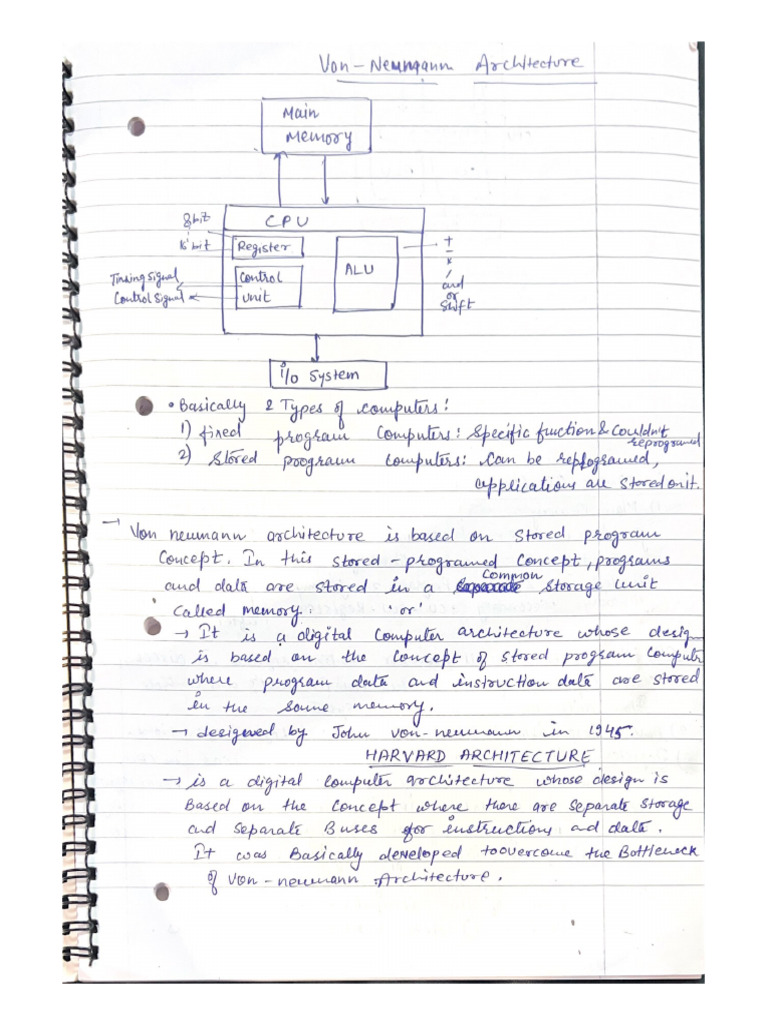 Von-Neumann Architecture
Main
Memory
CPU
8bit
16 bit
Register
ALU
+
-
*
/
and
or
shift
Timing Signal
Control Signal
Control
unit
i/o System
• Basically 2 Types of computers:
1) fixed program computers: Specific function & Couldn't
reprogramed
2) Stored program computers: Can be reprogramed,
applications are stored on it.
→ Von neumann architecture is based on Stored program
Concept. In this stored-programed Concept, programs
and data are stored in a common storage unit
called memory. 'or'
→ It is a digital Computer architecture whose design
is based on the concept of stored program Computer
where program data and instruction data are stored
in the same memory.
→ designed by John von-neumann in 1945.
HARVARD ARCHITECTURE
→ is a digital computer architecture whose design is
Based on the concept where there are separate storage
and separate Buses for instructions and data.
It was Basically developed to overcome the Bottleneck
of Von-neumann Architecture.